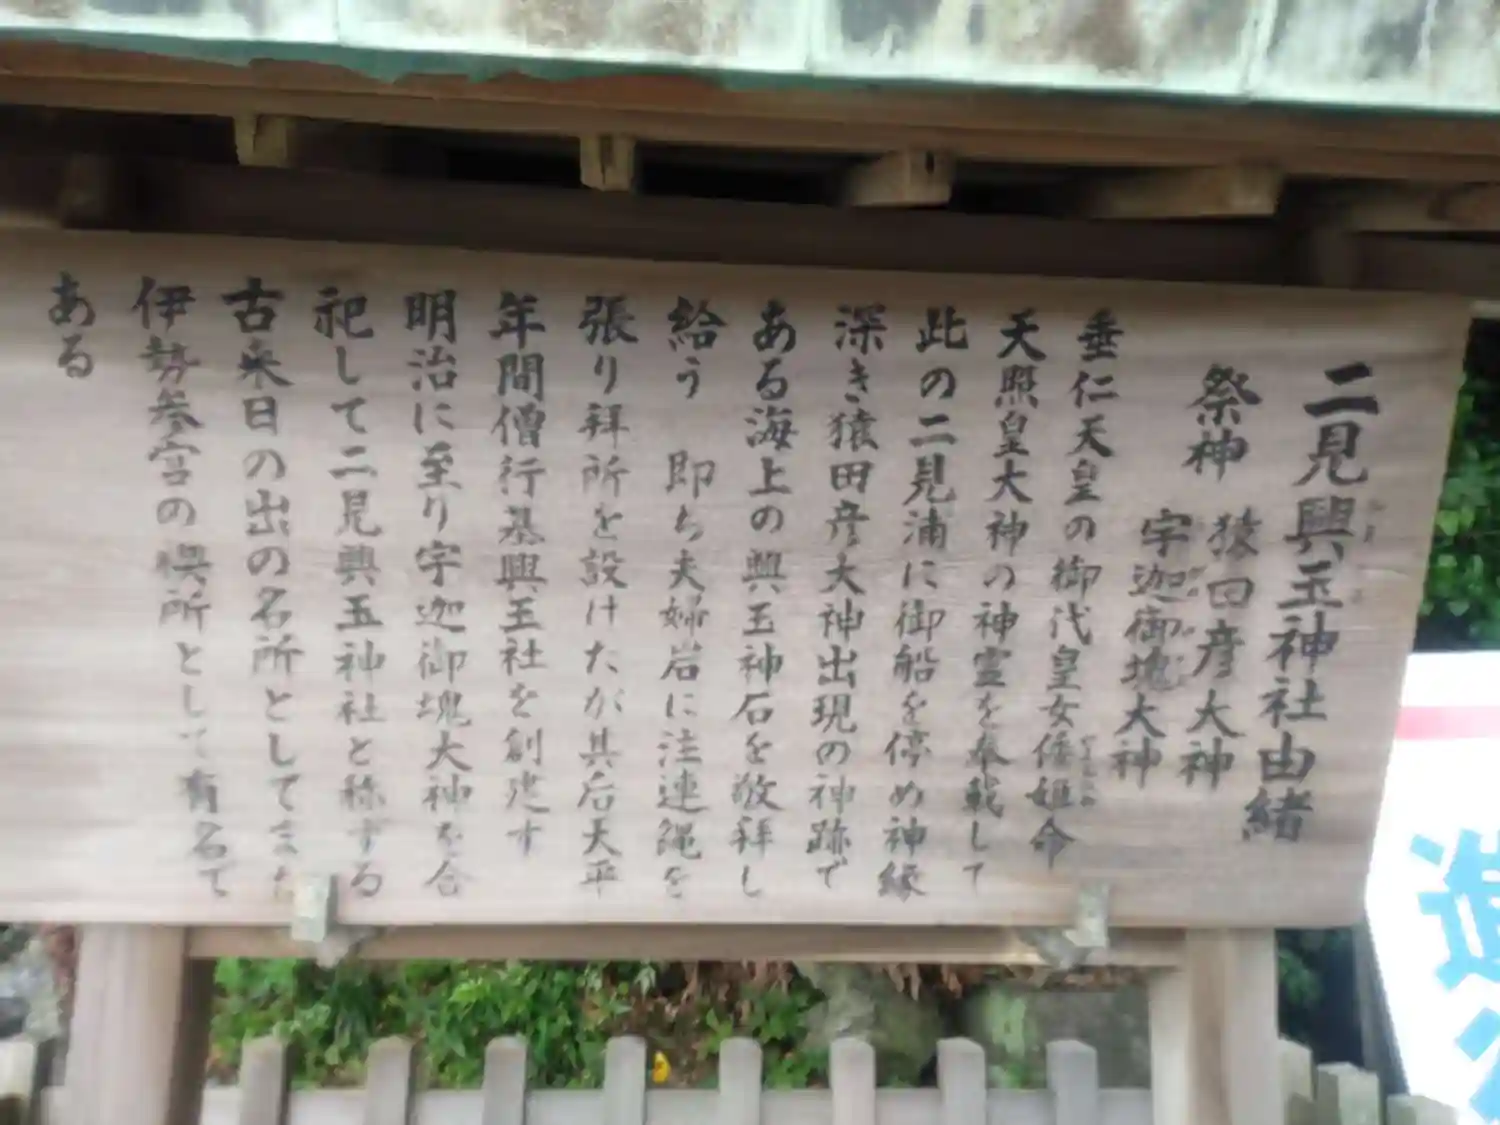 二見興玉神社由緒
祭神 猿田彦大神
宇迦御魂大神
垂仁天皇の御代皇女倭姫命
天照皇大神の神霊を奉戴して
此の二見浦に御船を停め神縁
深き猿田彦大神出現の神跡で
ある海上の興玉神石を敬拝し
給う 即ち夫婦岩に注連縄を
張り拝所を設けたが其后天平
年間僧行基興玉社を創建す
明治に至り宇迦御魂大神を合
祀して二見興玉神社と称する
古来日の出の名所としてまた
伊勢参宮の禊所として有名で
ある